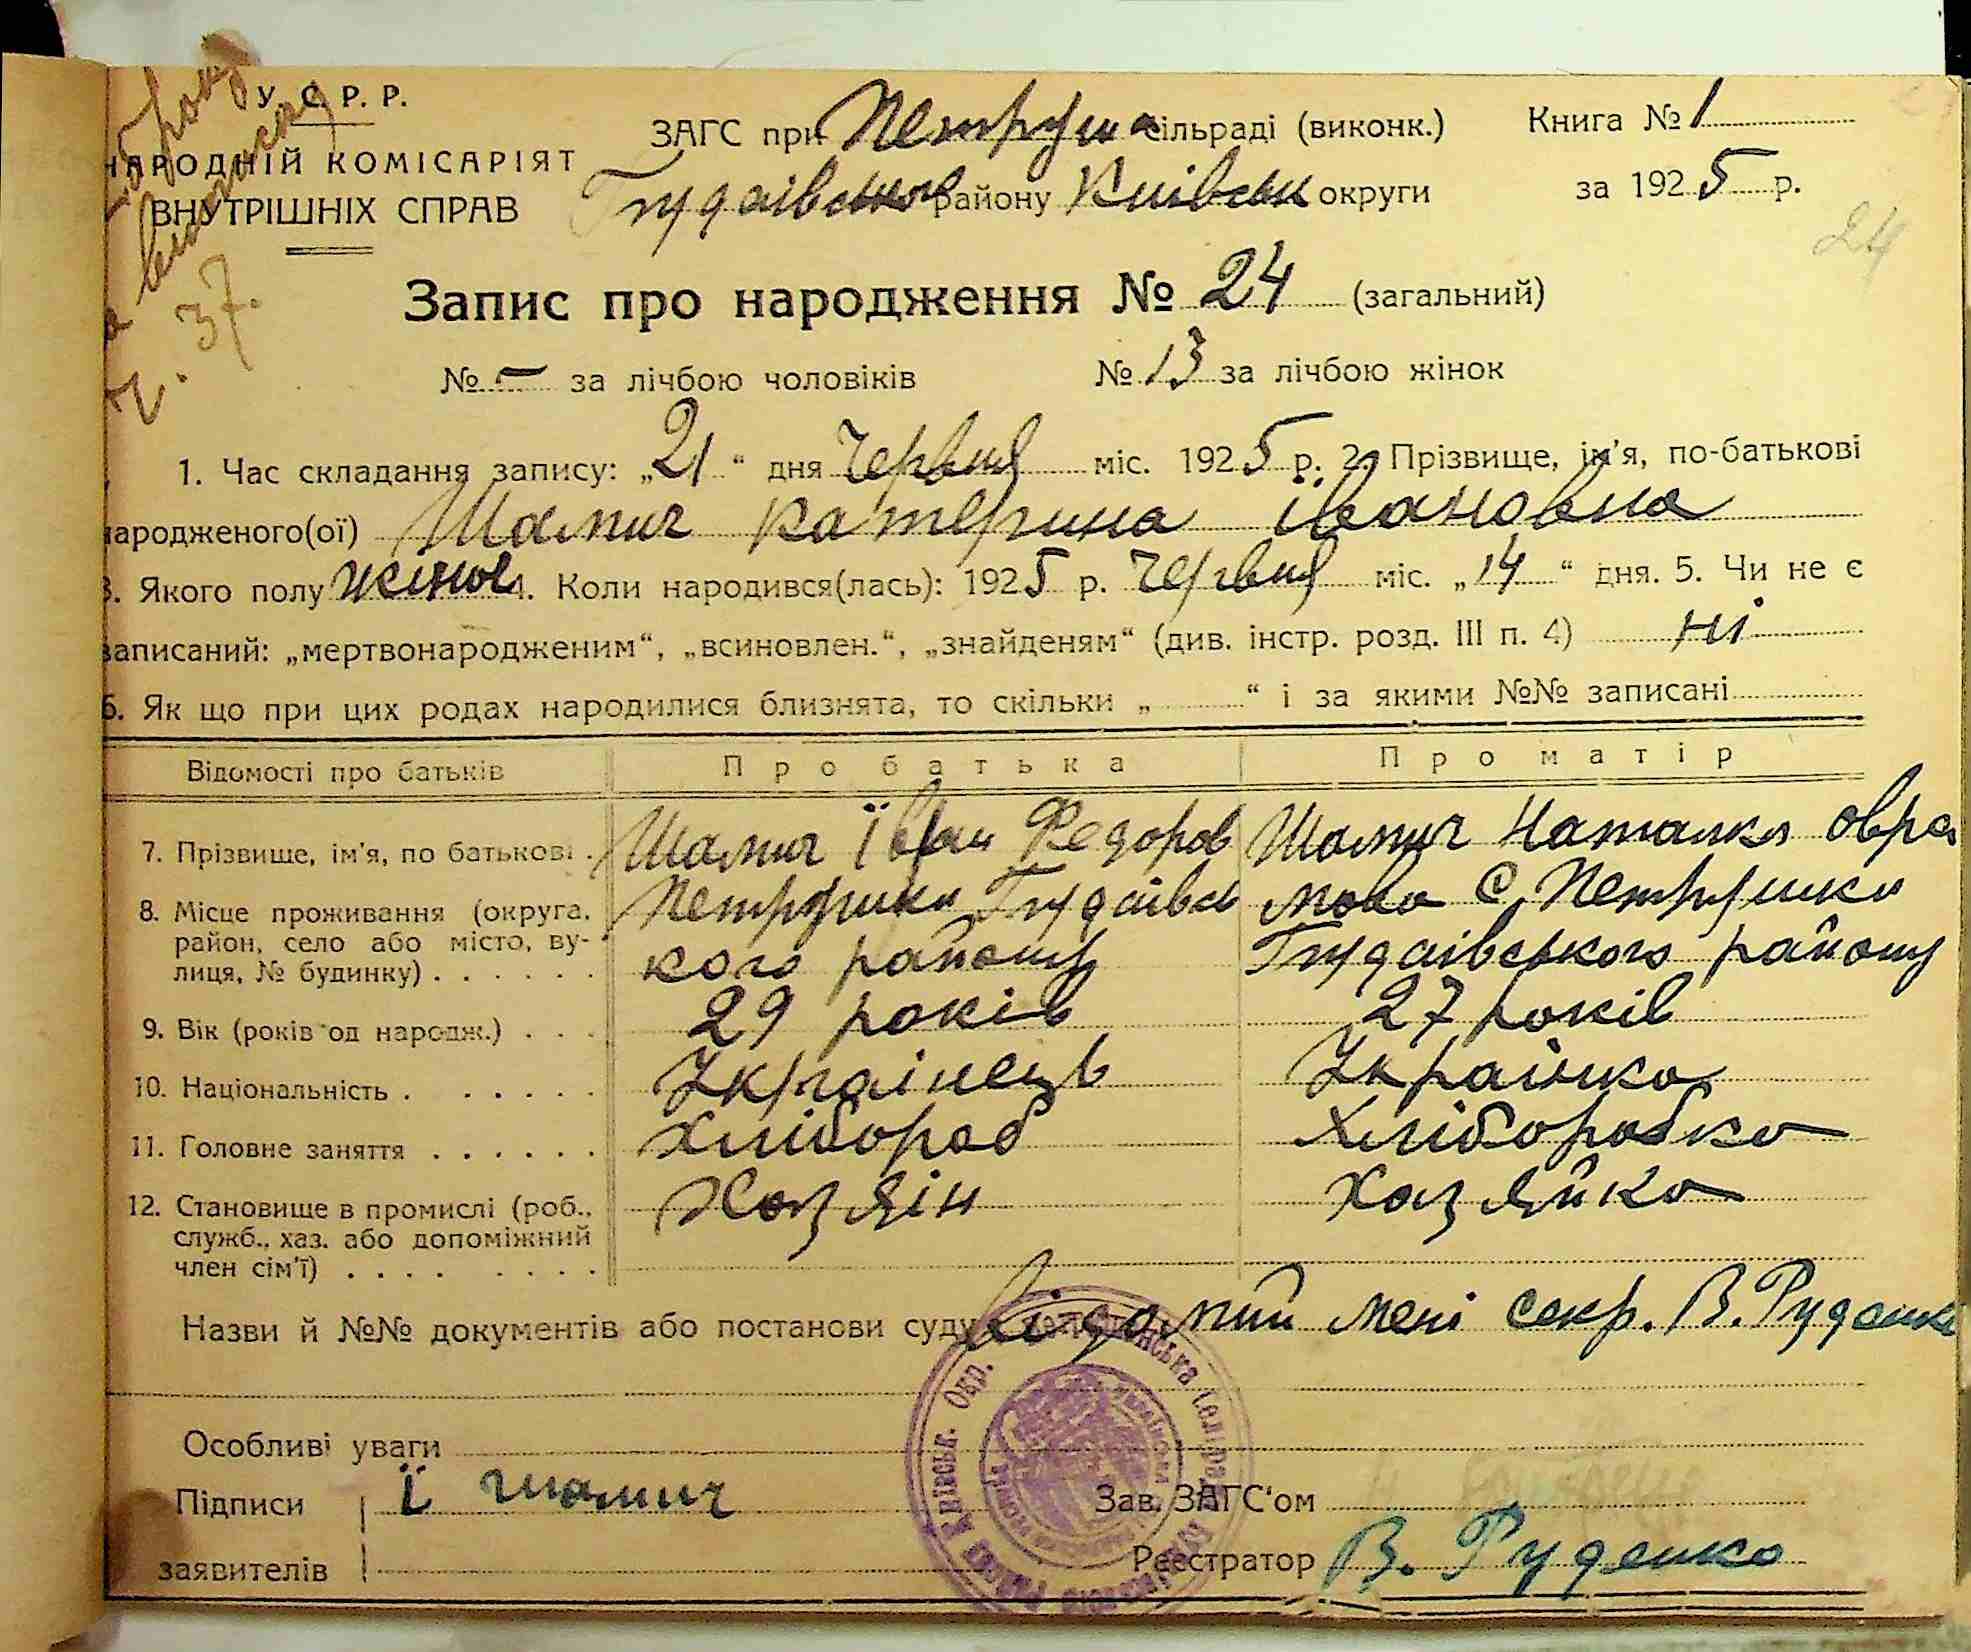 У. С. Р. Р.
НАРОДНІЙ КОМІСАРІЯТ
ВНУТРІШНІХ СПРАВ
ЗАГС при Петруш сільраді (виконк.)
Книга № 1
району Київськ округи
за 1925 р.
24
ч. 37.
Запис про народження № 24 (загальний)
№ – за лічбою чоловіків № 13 за лічбою жінок
1. Час складання запису: „21“ дня Червня міс. 1925 р. 2. Прізвище, ім'я, по-батькові
народженого(ої) Шамич Катерина Івановна
3. Якого полу жіноч 4. Коли народився(лась): 1925 р. Червня міс. „14“ дня. 5. Чи не є
записаний: „мертвонародженим“, „всиновлен.“, „знайденям“ (див. інстр. розд. III п. 4) ні
6. Як що при цих родах народилися близнята, то скільки „ “ і за якими №№ записані
Відомості про батьків Про батька Про матір
7. Прізвище, ім'я, по батькові Шамич Їван Федоров Шамич Наталка Овра
8. Місце проживання (округа, район, село або місто, вулиця, № будинку) Петрушки Гудаівсь мова с. Петрушки
кого району Гудаівського району
9. Вік (років од народж.) 29 років 27 років
10. Національність Українець Українка
11. Головне заняття Хлібороб Хліборобка
12. Становище в промислі (роб., служб., хаз. або допоміжний член сім'ї) Хазяїн Хазяйка
Назви й №№ документів або постанови суду Відомий мені секр. В. Руденко
Особливі уваги
Підписи Ї Шамич
Зав. ЗАГС'ом
заявителів
Реєстратор В. Руденко